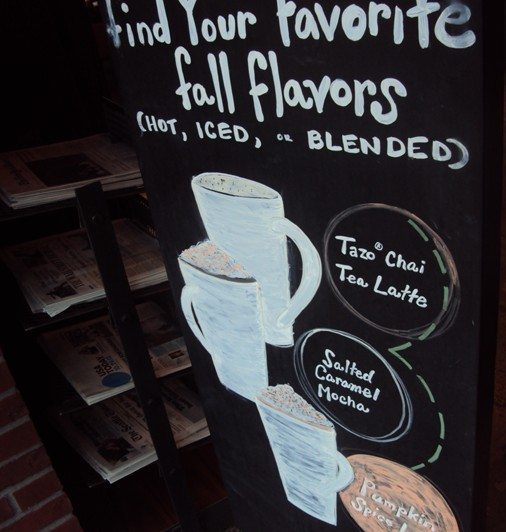 find Your favorite
fall flavors
(HOT, ICED, or BLENDED)
Tazo® Chai
Tea Latte
Salted
Caramel
Mocha
Pumpkin
Spice
USA
TODAY